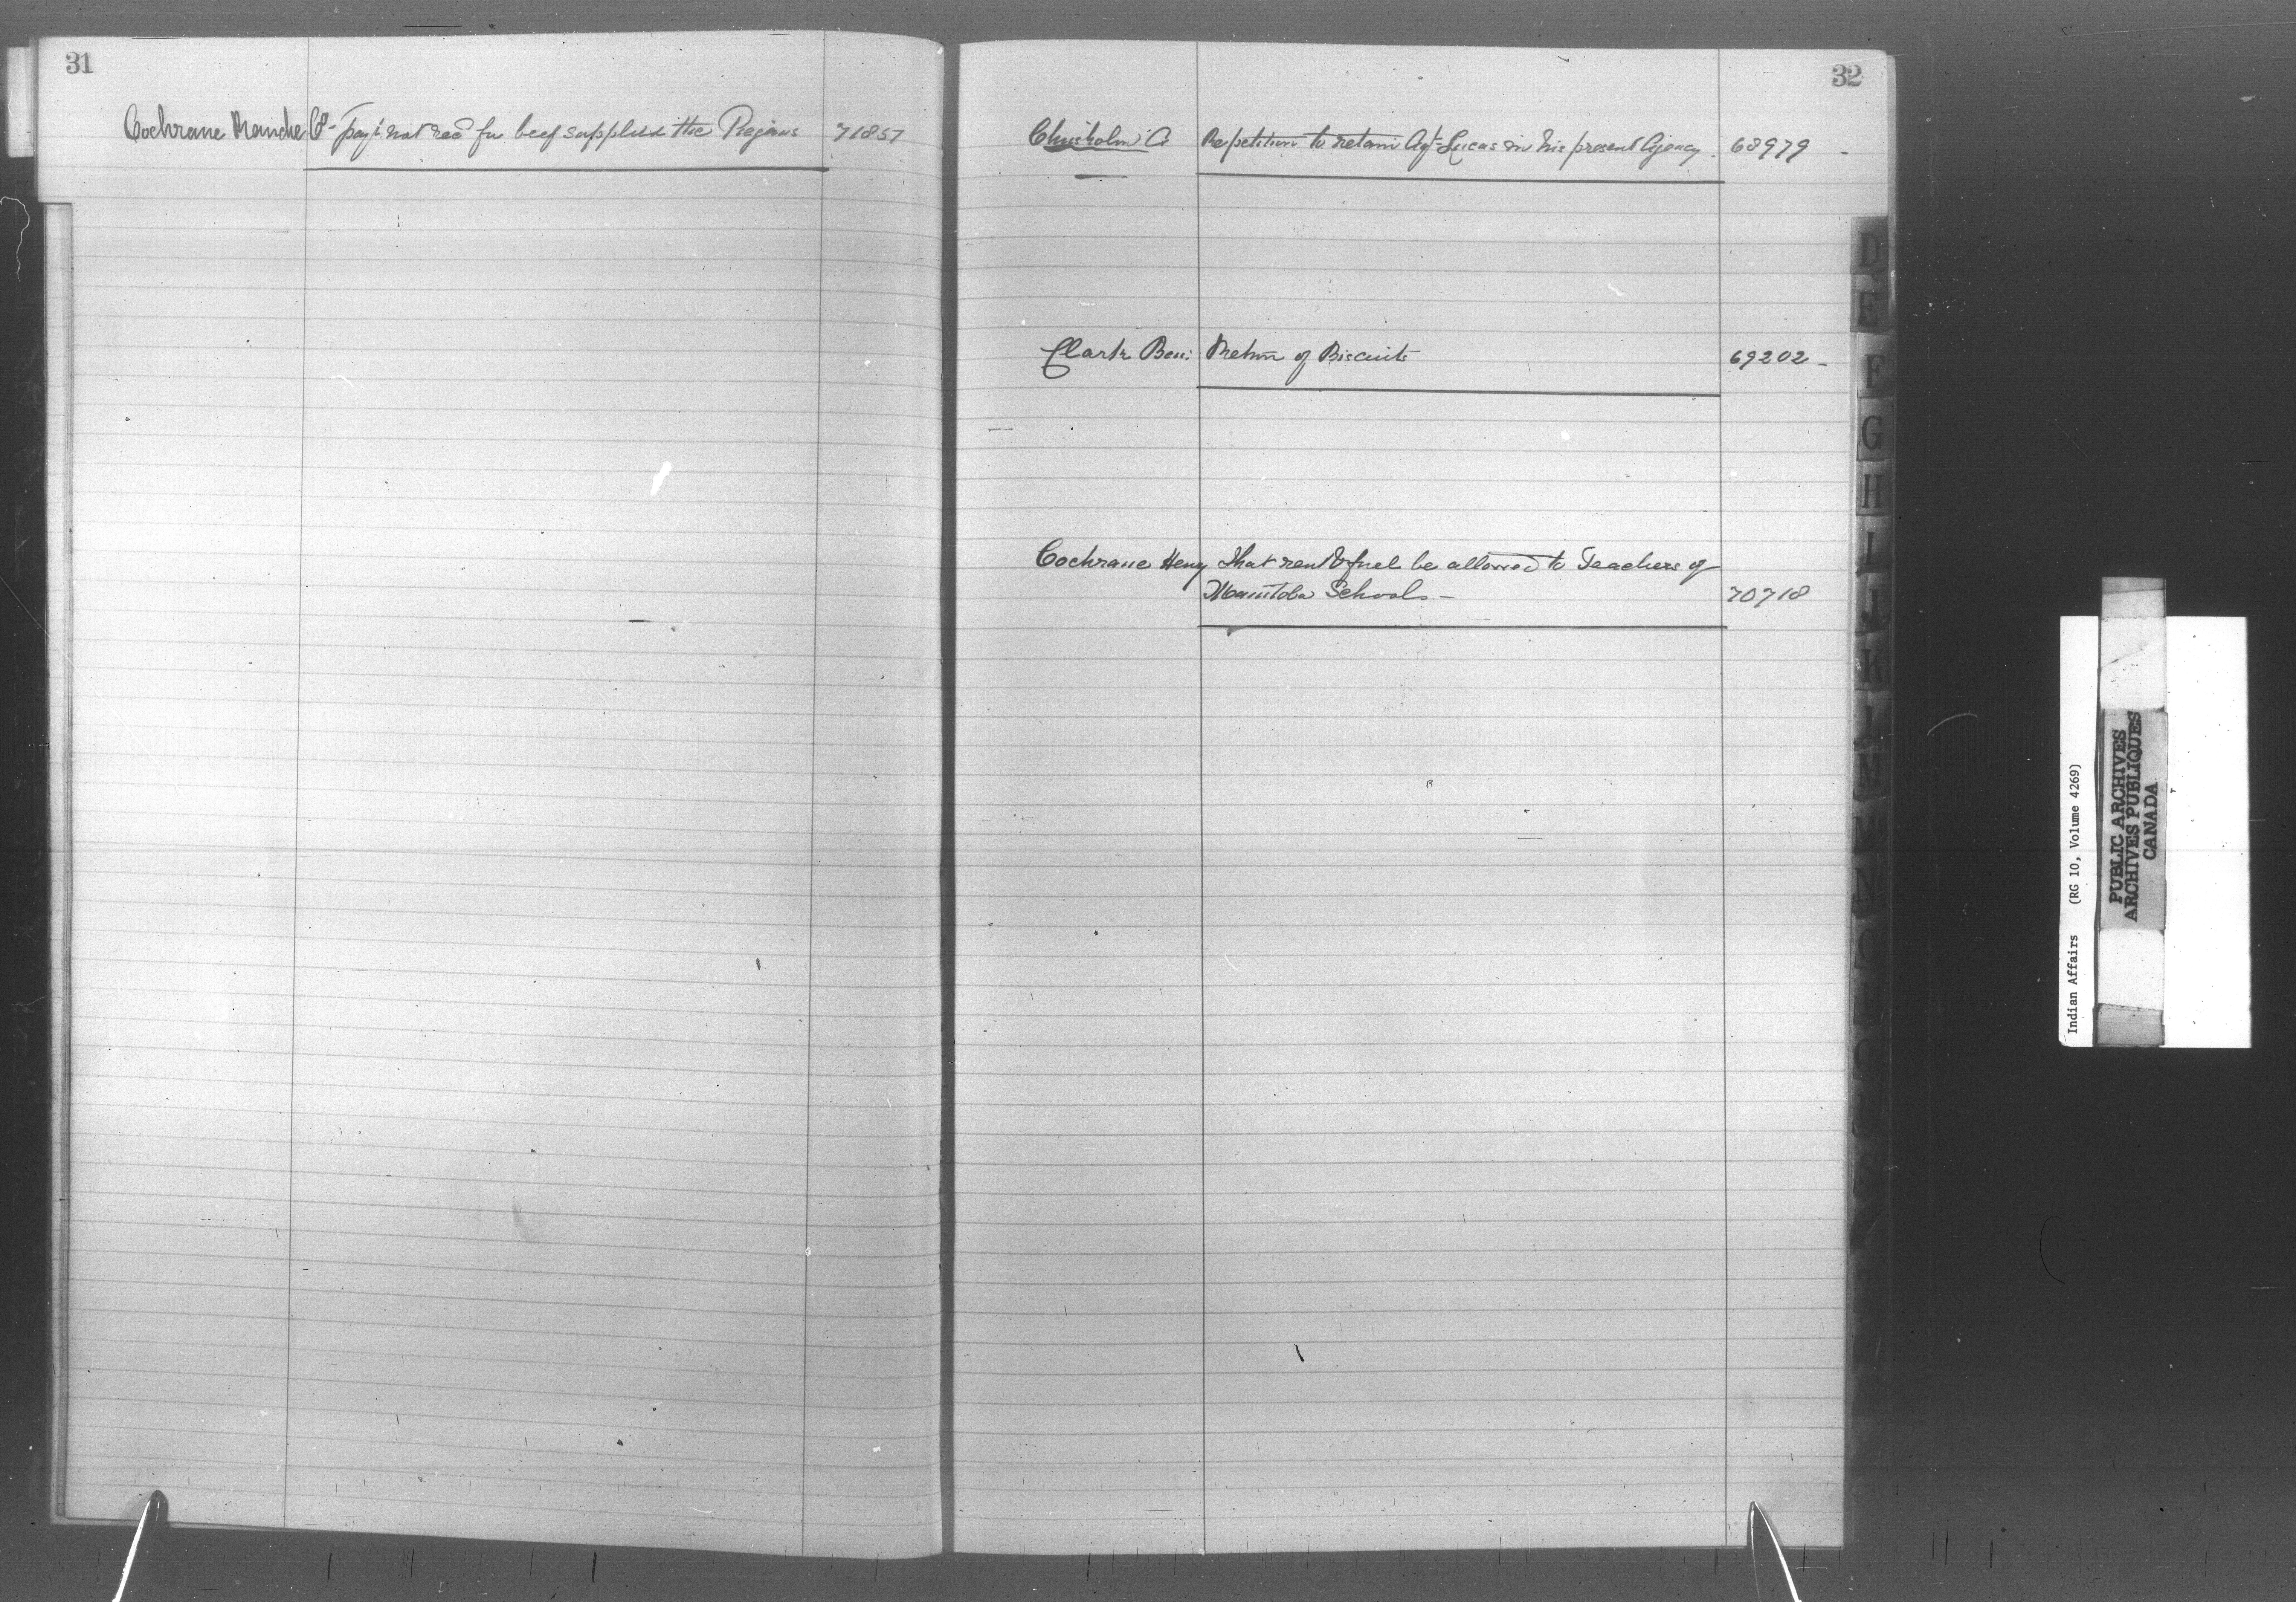 31
Cochrane Ranche Co- pay't not rec'd for beef supplied the Piegans 71857
32
Chisholm A Re petition to retain Agt Lucas in his present Agency. 68979 -
Clark Ben: Return of Biscuits 69202 -
Cochrane Heny That rent & fuel be allowed to Teachers of
Manitoba Schools - 70718
D
E
F
G
H
I
J
K
L
M
Indian Affairs (RG 10, Volume 4269)
PUBLIC ARCHIVES
ARCHIVES PUBLIQUES
CANADA